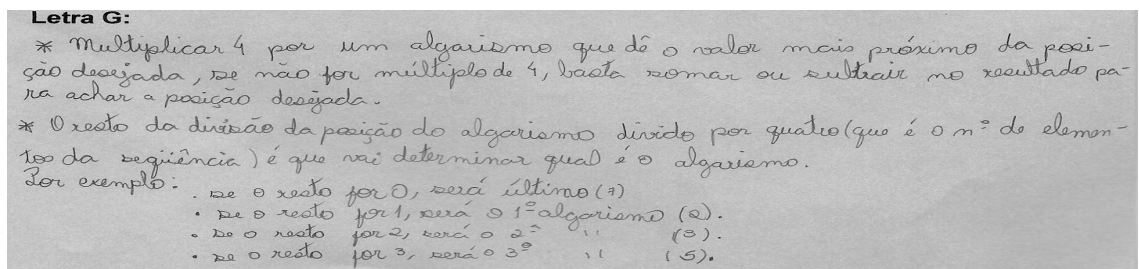 Letra G:
* Multiplicar 4 por um algarismo que dê o valor mais próximo da posi-
ção desejada, se não for múltiplo de 4, basta somar ou subtrair no resultado pa-
ra achar a posição desejada.
* O resto da divisão da posição do algarismo divido por quatro (que é o nº de elemen-
tos da seqüência) é que vai determinar qual é o algarismo.
Por exemplo: . se o resto for 0, será último (7)
. se o resto for 1, será o 1º algarismo (2).
. se o resto for 2, será o 2º " (3).
. se o resto for 3, será o 3º " (5).